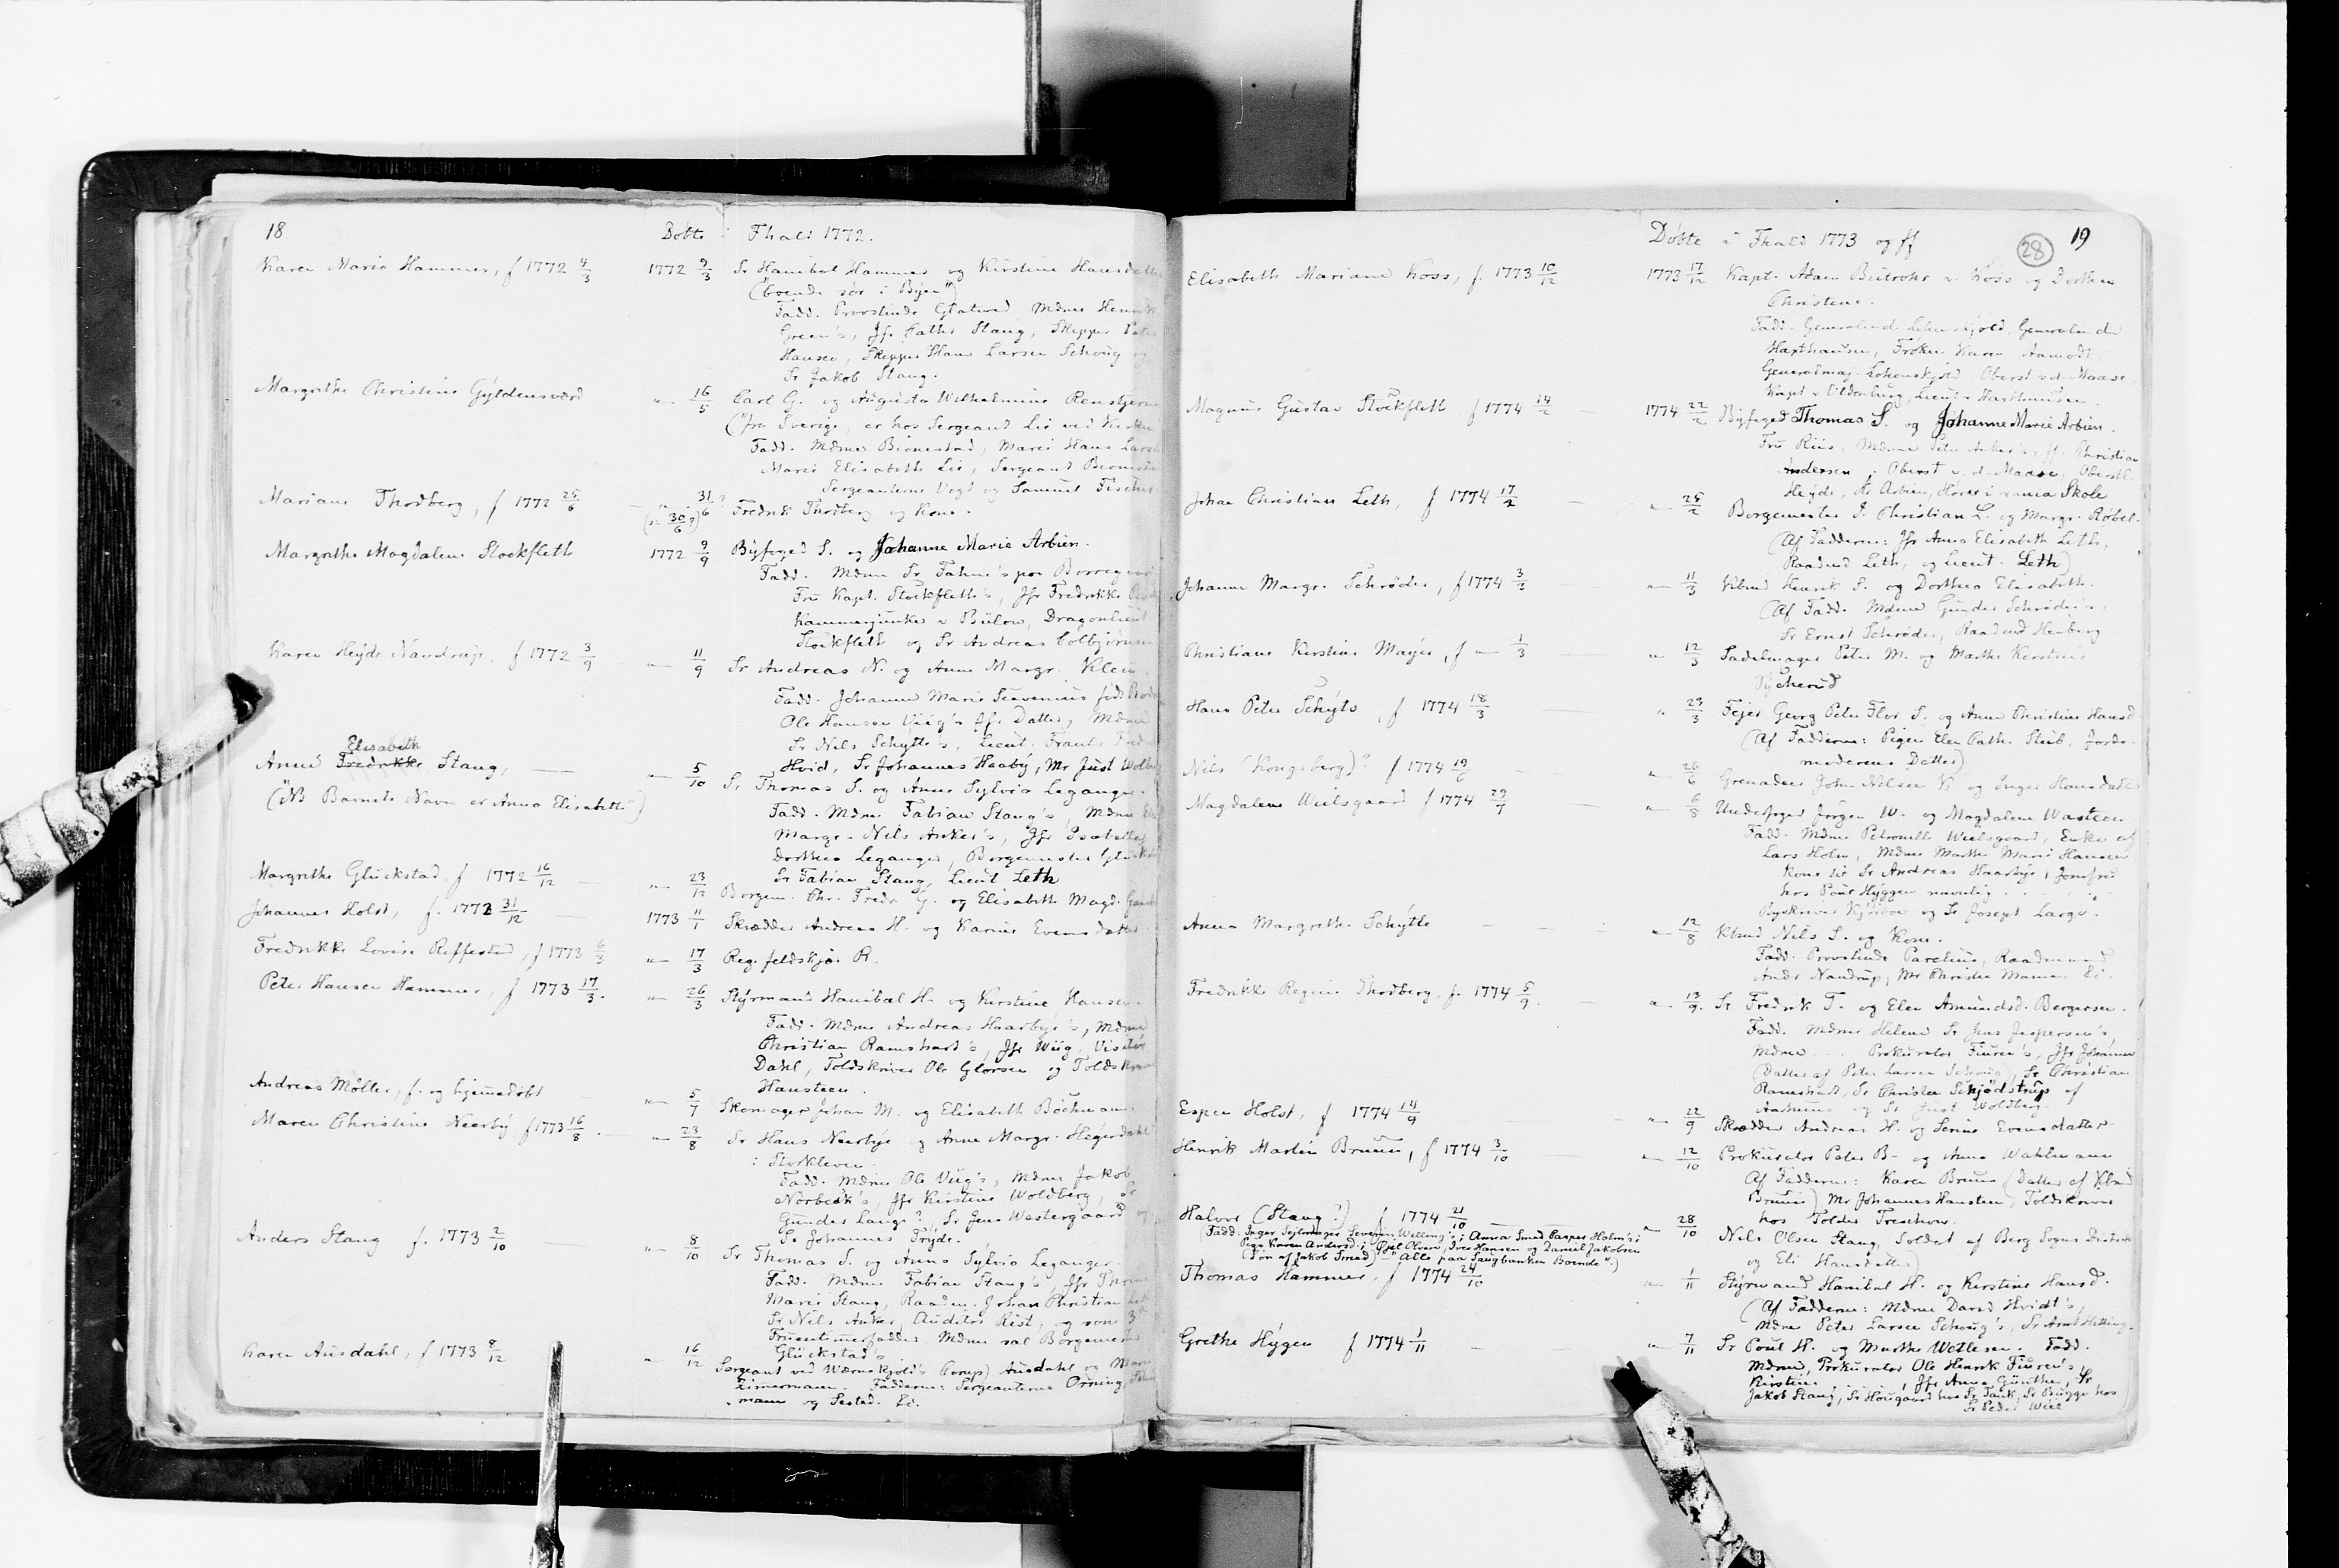 18 Døbte i Fhald 1772.
Karen Marie Hammer, f 1772 4/3 1772 9/3 Sr Hanibal Hammer og Kirstine Hansdatter
("boende sør i Byen")
Fadd. Provstinde Glatved, Mdme Henrik
Green's, Jfr Cathr Stang, Skipper Peter
Hansen, Skipper Hans Larsen Schoug og
Sr Jakob Stang.
Margrethe Christine Gyldensværd " 16/5 Carl G. og Augusta Wilhelmine Renstjerna
("fra Sverige, er hos Sergeant Lie ved Kirken
Fadd. Mdme Biørnestad, Maren Hans Lars
Maren Elisabeth Lie, Sergeant Biørnestad
Sergeanterne Vogt og Samuel Fischer
Mariane Thodberg, f 1772 25/6 " 31/6 ? Fredrik Thodberg og Kone.
(30/6 ?)
Margrethe Magdalene Stockfleth 1772 9/9 Byfoged S. og Johanne Marie Arbien.
Fadd. Mdme Sr Fahne's paa Borregaard
Fru Kapt. Stockfleth's, Jfr Fredrikke
Kammerjunker v Bülow, Dragonlieut
Stockfleth og Sr Andreas Colbjørnsen
Karen Heyde Nandrup, f 1772 3/9 " 11/9 Sr Andreas N. og Anne Margr. Klein.
Fadd. Johanne Marie Scavenius født
Ole Hansen Viig's Jfr Datter, Mdme
Sr Nils Schytte's, Lieut. Frants
Hvid, Sr Johannes Haaby, Mr Just Wolberg
Elisabeth
Anna Fredrikke Stang, " 5/10 Sr Thomas S. og Anne Sylvia Leganger.
("NB Barnets Navn er Anna Elisabeth")
Fadd. Mdme Fabian Stang's, Mdme
Margr. Nils Anker's, Jfr Isabella
Dorthea Leganger, Borgemester Glückstad
Sr Fabian Stang, Lieut Leth
Margrethe Glückstad, f 1772 16/12 " 23/12 Borgem. Chr. Fredr. G. og Elisabeth Magd.
Johannes Holst, f. 1772 31/12 1773 11/1 Skrædder Andreas H. og Karine Evensdatter
Fredrikke Lovise Reffestad, f 1773 6/3 " 17/3 Reg. feldskjær R.
Peter Hansen Hammer, f 1773 17/3. " 26/3 Styrmand Hanibal H. og Kirstine Hansen.
Fadd. Mdme Andreas Haarbye's, Mdme
Christian Ramshart's, Jfr Wiig, Visitør
Dahl, Toldskriver Ole Glørsen og Toldskriver
Hansteen.
Andreas Møller, f. og hjemmedøbt " 5/7 Skomager Johan M. og Elisabeth Böchmann
Maren Christine Neerby, f 1773 16/8. " 23/8 Sr Hans Neerbye og Anne Margr. Hegersdahl
i Storkleven.
Fadd. Mdme Ole Viig's, Mdme Jakob
Nørbeck's, Jfr Kirstine Woldberg, Sr
Gunder Lange?, Sr Jens Westergaard og
Sr Johannes Fryde.
Anders Stang f. 1773 2/10 " 8/10 Sr Thomas S. og Anna Sylvia Leganger.
Fadd. Mdme Fabian Stang's, Jfr
Marie Stang, Raadm. Johan Christian
Sr Nils Anker, Auditør Rist, og som 3
Fruentimmerfadder Mdme sal Borgemester
Glückstad's
Karen Ausdahl, f 1773 8/12 " 16/12 Sergeant ved Wærnskjold's Corps) Ausdahl og Maren
Zimmermann. Fadderne: Sergeanterne Orning,
mann og Sested. Ei.
Døbte i Fhald 1773 og ff 28 19
Elisabeth Mariane Koss, f. 1773 10/12 1773 17/12 Kapt. Adam Beutrohr v. Koss og Dorthea
Christene.
Fadd. Generalinde Lohenskjold, Generalinde
Haxthausen, Frøken Karen Aamodt,
Generalmaj. Lohenskjold, Oberst v.d. Maase,
Kapt v Oldenburg, Lieut v Haxthausen.
Magnus Gustav Stockfleth, f 1774 14/2 1774 22/2 Byfoged Thomas S. og Johanne Marie Arbien.
Fru Riis, Mdme Peter Anker's, Jfr Christian
Andersen, Oberst v. d. Maase, Oberstl.
Heyde, Hr Arbien, Hører i Skole
Johan Christian Leth, f 1774 17/2 " 25/2 Borgemester J. Christian L. og Margr. Røbel.
(Af Fadderne: Jfr Anna Elisabeth Leth,
Raadmd Leth, og Lieut. Leth)
Johanne Margr. Schrøder, f 1774 3/3 " 11/3 Kbmd Henrik S. og Dorthea Elisabeth.
(Af Fadd. Mdme Gunder Schrøder's,
Sr Ernst Schrøder, Raadmd Herberg
Christiane Kirstine Mayer, f " 1/3 " 12/3 Sadelmager Peter M. og Marthe Kirstine
Tycherud
Hans Peter Schyts, f 1774 18/3 " 23/3 Fejer Georg Peter Flor S. og Anne Christine Hansd.
(Af Fadderne: Pigen Elen Cath. Stub, Jorde-
moderens Datter)
Nils (Kongsberg)? f 1774 19/6 " 26/6 Grenadeer John Nilsen K. og Inger Hansdatter
Magdalene Wielsgaard f 1774 29/7 " 6/8 Underfoged Jørgen W. og Magdalene Wasteen
Fadd. Mdme Petronelle Wielsgaard, Enke af
Lars Holm, Mdme Marthe Marie Hansen
Kone til Sr Andreas Haarbye, Jomfru
hos Poul Hyggen navnlig . . . . .
Byskriver Kjølboe og Sr Joseph Large.
Anna Margrethe Schytte " 12/8 Kbmd Nils S. og Kone.
Fadd. Provstinde Parelius, Raadmand
Andr Nandrup, Mr Christen Mamen. Ei.
Fredrikke Regine Thodberg, f. 1774 5/9. " 13/9. Sr Fredrik T. og Elen Amundsd. Bergersen.
Fadd. Mdme Helene Sr Jens Jespersen's,
Mdme . . . Prokurator Fiuren's, Jfr Johanne
(Datter af Peter Larsen Schoug), Sr Christian
Ramshart, Sr Christen Schjødstrup af
Aarhuus og Sr Just Woldberg
Espen Holst, f 1774 14/9 " 22/9 Skrædder Andreas H. og Serine Evensdatter
Henrik Martin Bruun, f 1774 3/10 " 12/10 Prokurator Peter B. og Anna Wahlmann
Af Fadderne: Karen Bruun (Datter af Kbmd
Bruun) Mr Johannes Hansten, Toldskriver
hos Tolder Treschow.
Halvor (Stang?) f 1774 21/10 " 28/10 Nils Olsen Stang, Soldat af Berg Sogns Distrikt
og Eli Hansdatter)
(Fadd. Inger Sejlmager Severin Welling's; Anna Smed Casper Holm's;
Pige Karen Andersd.; Poul Olsen, Iver Hansen og Daniel Jakobsen
(Søn af Jakob Smed) - "Alle paa Saugbanken Boende".)
Thomas Hammer, f 1774 24/10 " 1/11 Styrmand Hanibal H. og Kirstine Hansd.
(Af Fadderne: Mdme David Hvidt's,
Mdme Peter Larsen Schoug's, Sr Arnt Helling.
Grethe Hygen f 1774 1/11 " 7/11 Sr Poul H. og Marthe Wetlesen. Fadd.
Mdme, Prokurator Ole Henrik Fiuren's,
Kirstine , Jfr Anna Günther, Sr
Jakob Stang, Sr Hougaard hos Sr Tank, Sr Brügge hos
Sr Peder Wiel